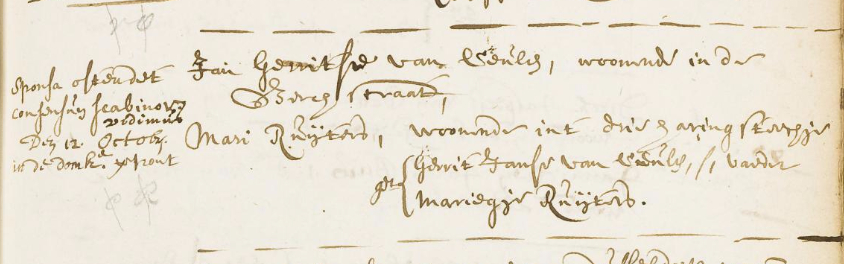 Sponsa ostendet
consensum scabinorum
vidimus
Den 12. Octob.
in de domk. getrout
Jan Gerritse van Ceulen, woonende in de
Heeren straat,
Mari Ruijters, woonende int drie haring steechje
get
Gerrit Janse van Ceulen, sijn vaeder
Mariegje Ruijters.